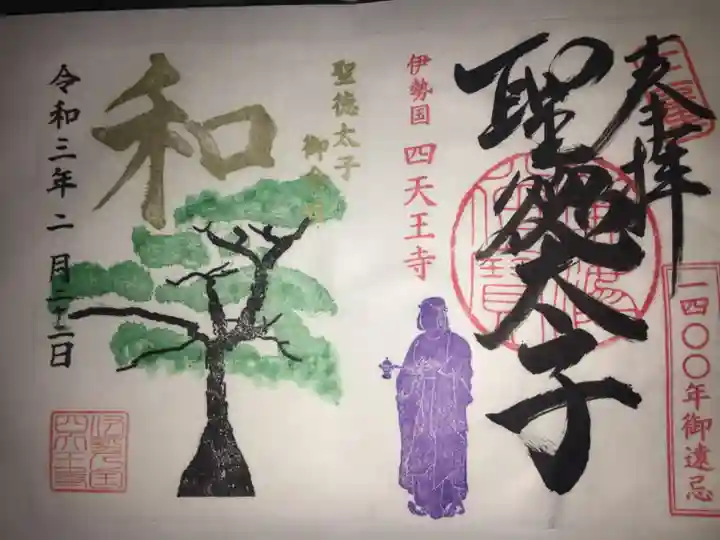 奉拝
聖徳太子
一四〇〇年御遠忌
伊勢国 四天王寺
聖徳太子
和
令和三年二月二十二日